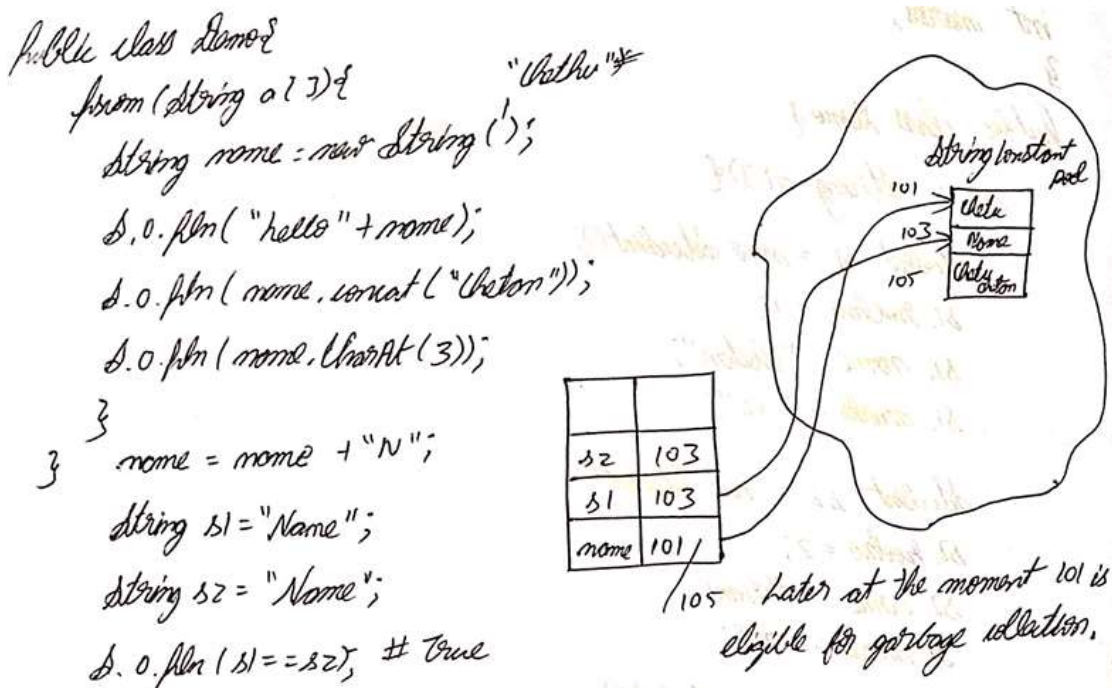 Public class Demo{
psvm (String a[]){
"Chethu"
String name = new String ( );
S.o.pln( "hello" + name);
S.o.pln( name.concat ( "Chetan"));
S.o.pln( name.CharAt (3));
}
}
name = name + "N";
String s1 = "Name";
String s2 = "Name";
S.o.pln (s1 == s2); # True
String Constant
Pool
101 Chetu
103 Name
105 Chetu
s2 103
s1 103
name 101
105
Later at the moment 101 is
eligible for garbage collection.